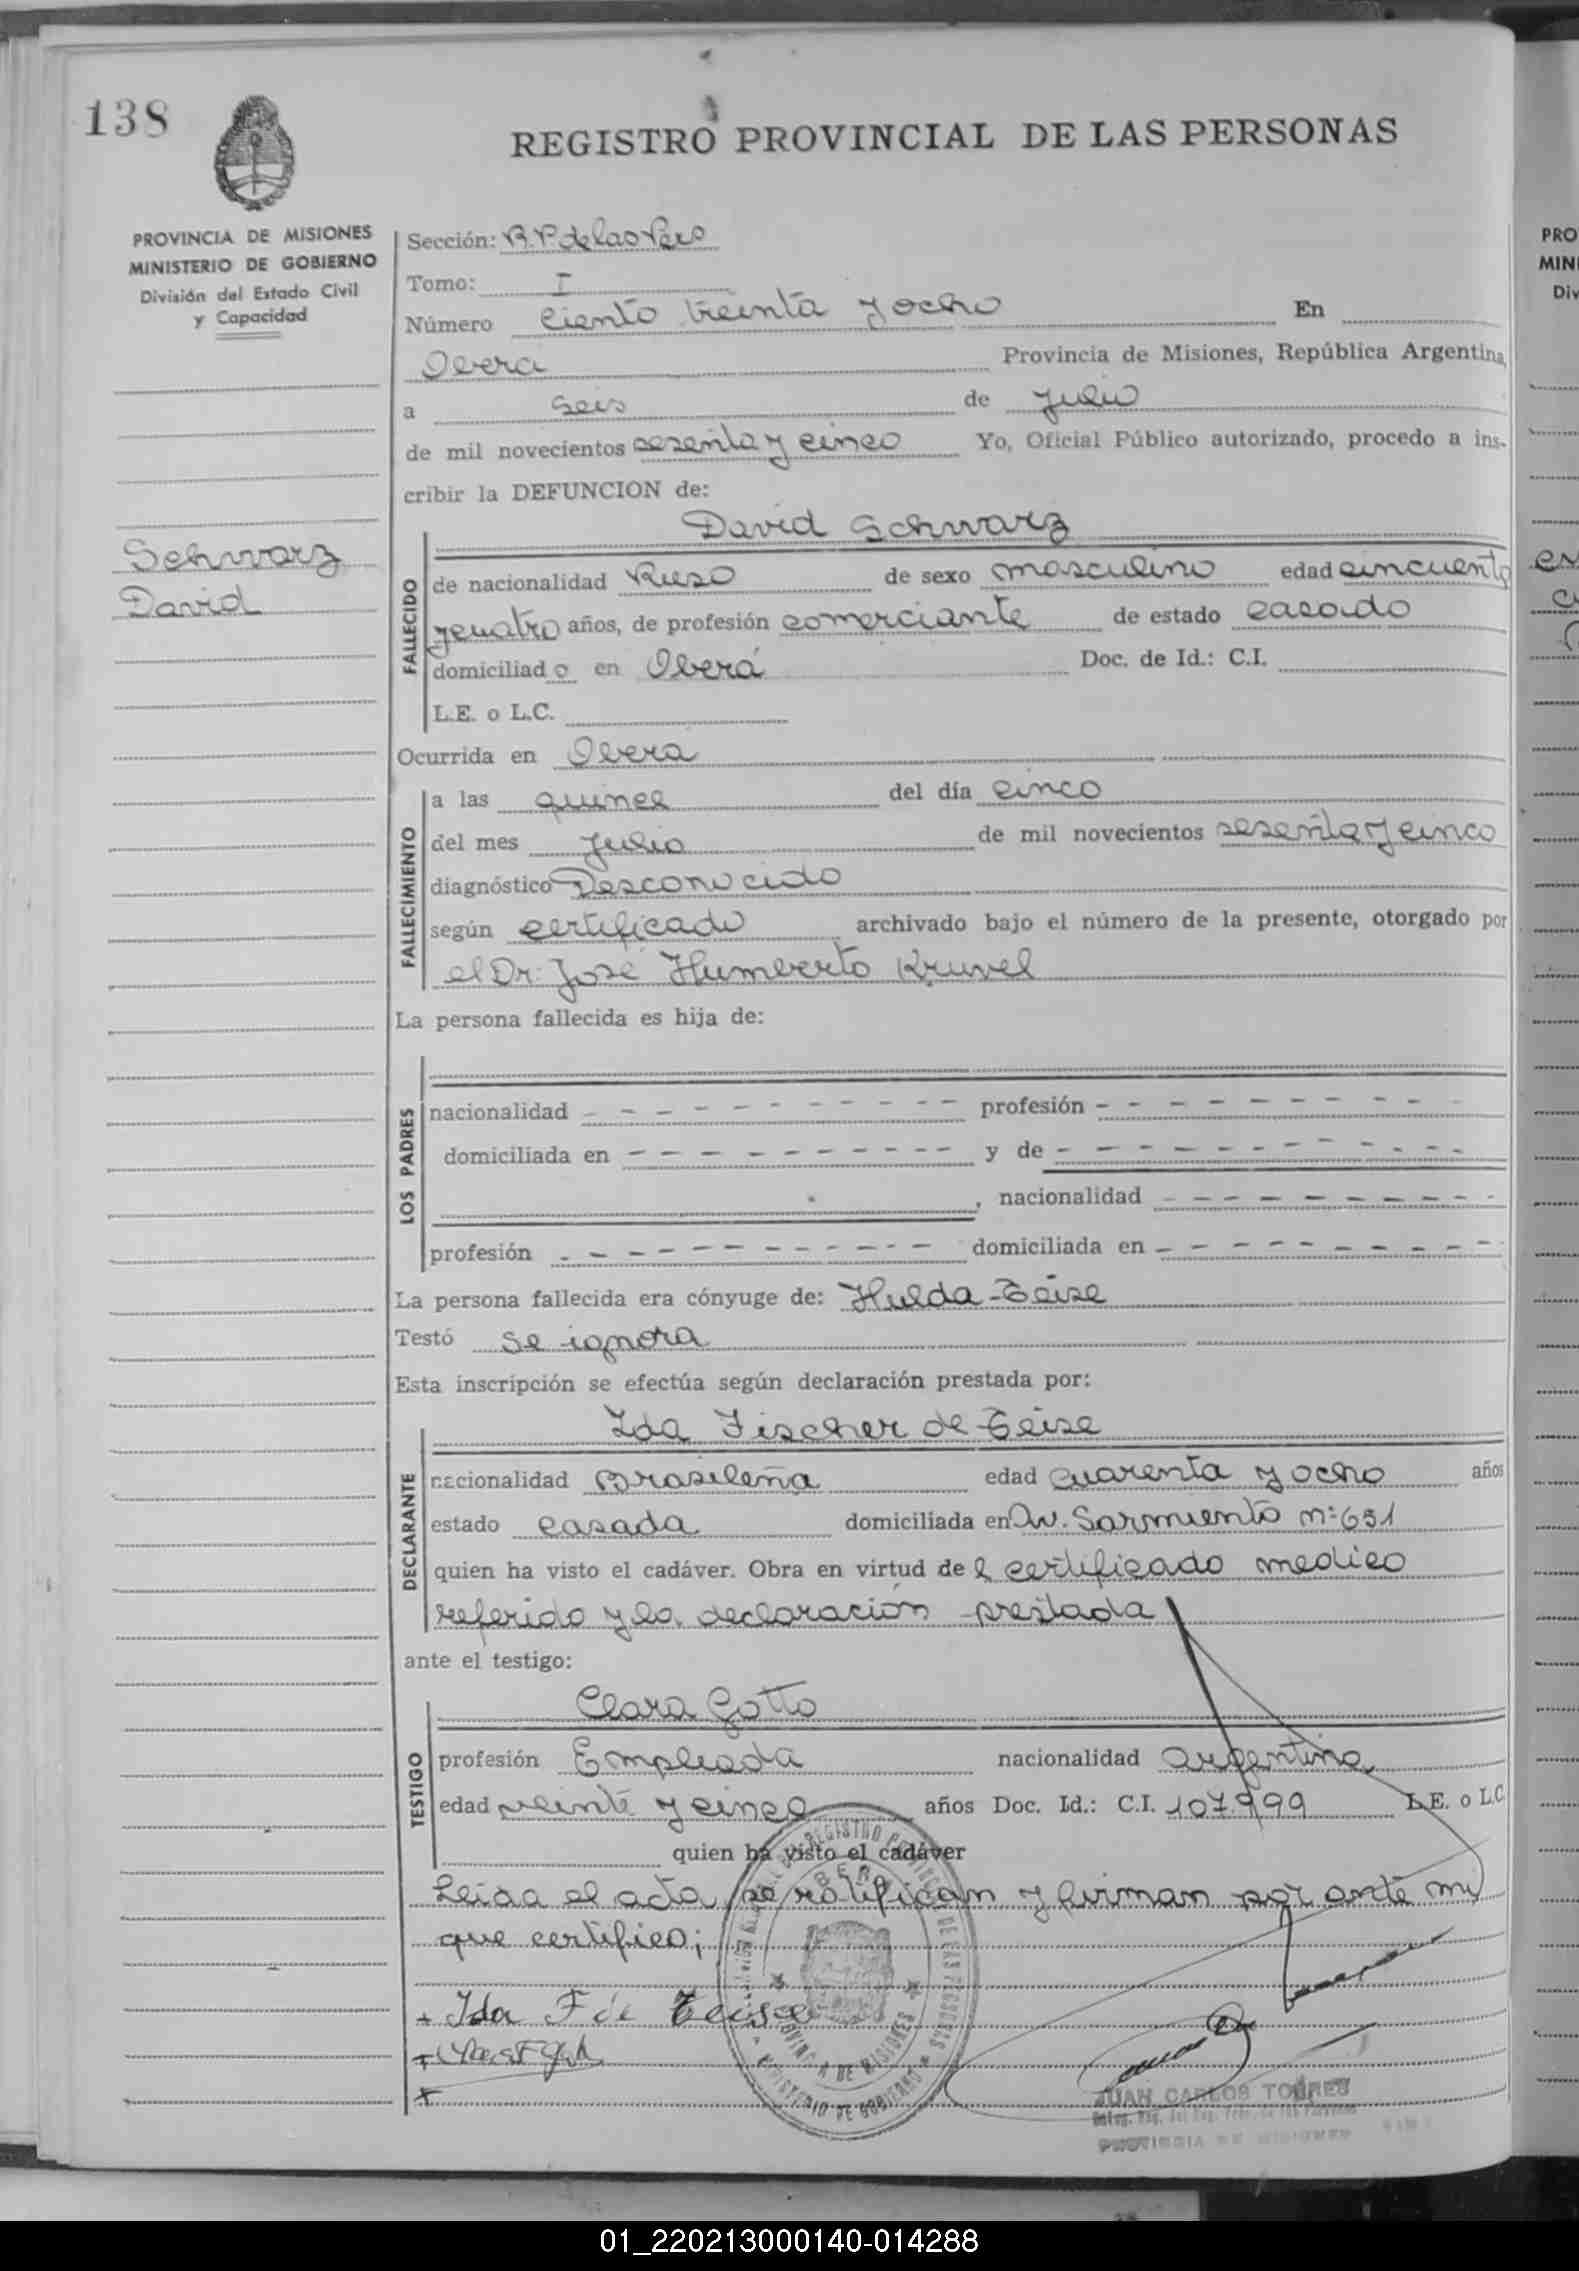 138
REGISTRO PROVINCIAL DE LAS PERSONAS
PROVINCIA DE MISIONES
MINISTERIO DE GOBIERNO
División del Estado Civil
y Capacidad
Schwarz
David
Sección: R.P. de las Pers
Tomo: I
Número ciento treinta y ocho En
Obera Provincia de Misiones, República Argentina,
a seis de Julio
de mil novecientos sesenta y cinco Yo, Oficial Público autorizado, procedo a ins-
cribir la DEFUNCION de:
David Schwarz
FALLECIDO
de nacionalidad Ruso de sexo masculino edad cincuenta
y cuatro años, de profesión comerciante de estado casado
domiciliado en Oberá Doc. de Id.: C.I.
L.E. o L.C.
Ocurrida en Obera
FALLECIMIENTO
a las quince del día cinco
del mes Julio de mil novecientos sesenta y cinco
diagnóstico Desconocido
según certificado archivado bajo el número de la presente, otorgado por
el Dr. José Humberto Kruvel
La persona fallecida es hija de:
LOS PADRES
nacionalidad - - - - - - - - - - profesión - - - - - - - - - -
domiciliada en - - - - - - - - - - y de - - - - - - - - - -
, nacionalidad - - - - - - - - - -
profesión - - - - - - - - - - domiciliada en - - - - - - - - - -
La persona fallecida era cónyuge de: Hulda Teise
Testó se ignora
Esta inscripción se efectúa según declaración prestada por:
Ida Fischer de Teise
DECLARANTE
nacionalidad Brasileña edad cuarenta y ocho años
estado casada domiciliada en Av. Sarmiento nº 651
quien ha visto el cadáver. Obra en virtud del certificado medico
referido y la declaración prestada
ante el testigo:
Clara Gotto
TESTIGO
profesión Empleada nacionalidad argentina
edad veinte y cinco años Doc. Id.: C.I. 107.999 L.E. o L.C.
quien ha visto el cadáver
Leida el acta, se ratifican y firman por ante mi
que certifico;
+ Ida F de Teise
+
+
JUAN CARLOS TORRES
PROVINCIA DE MISIONES
PRO
MINI
Div
01_220213000140-014288